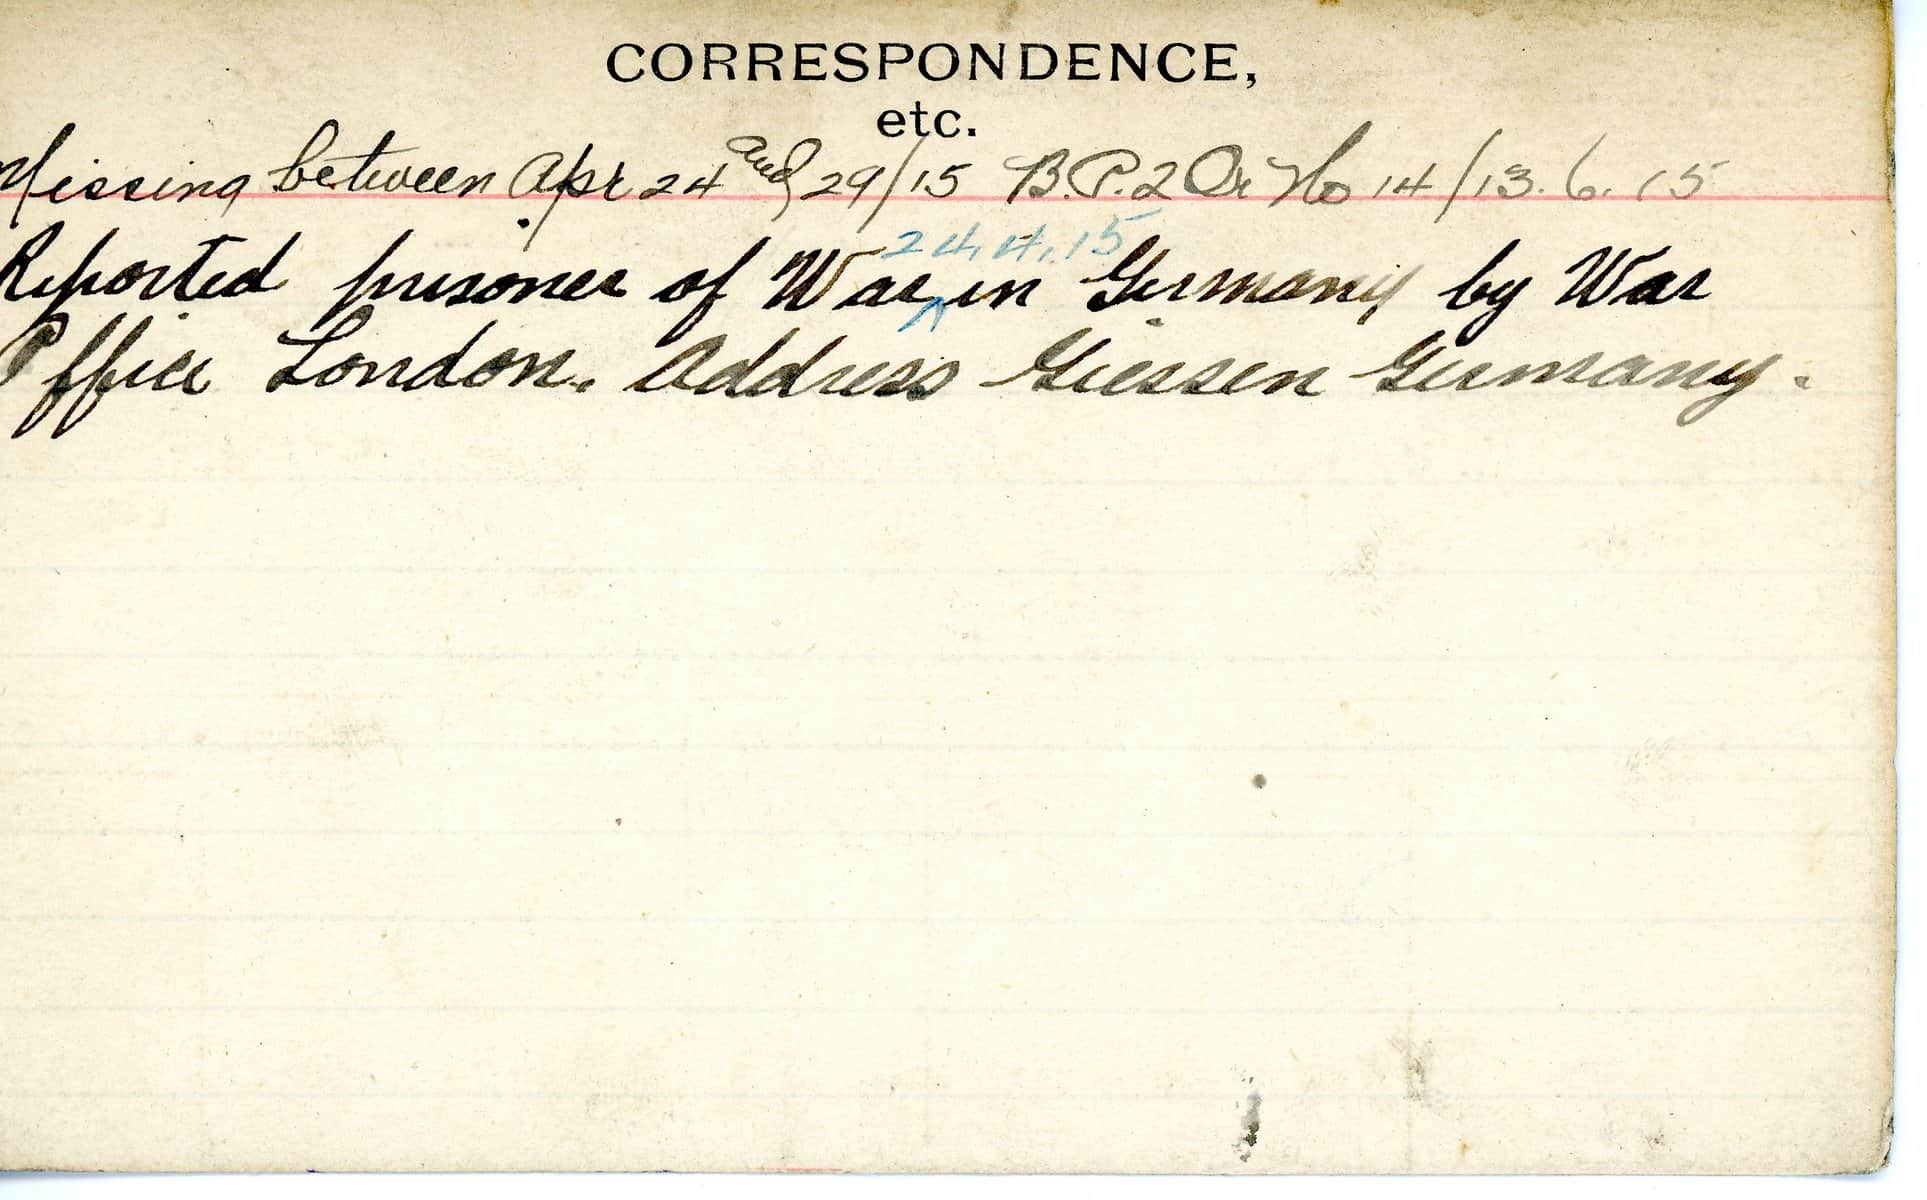 CORRESPONDENCE,
etc.
Missing between Apr 24 and 29/15 B.P. 2 Or No 14/13.6.15
24.4.15
Reported prisoner of War in Germany by War
Office London. Address Giessen Germany.